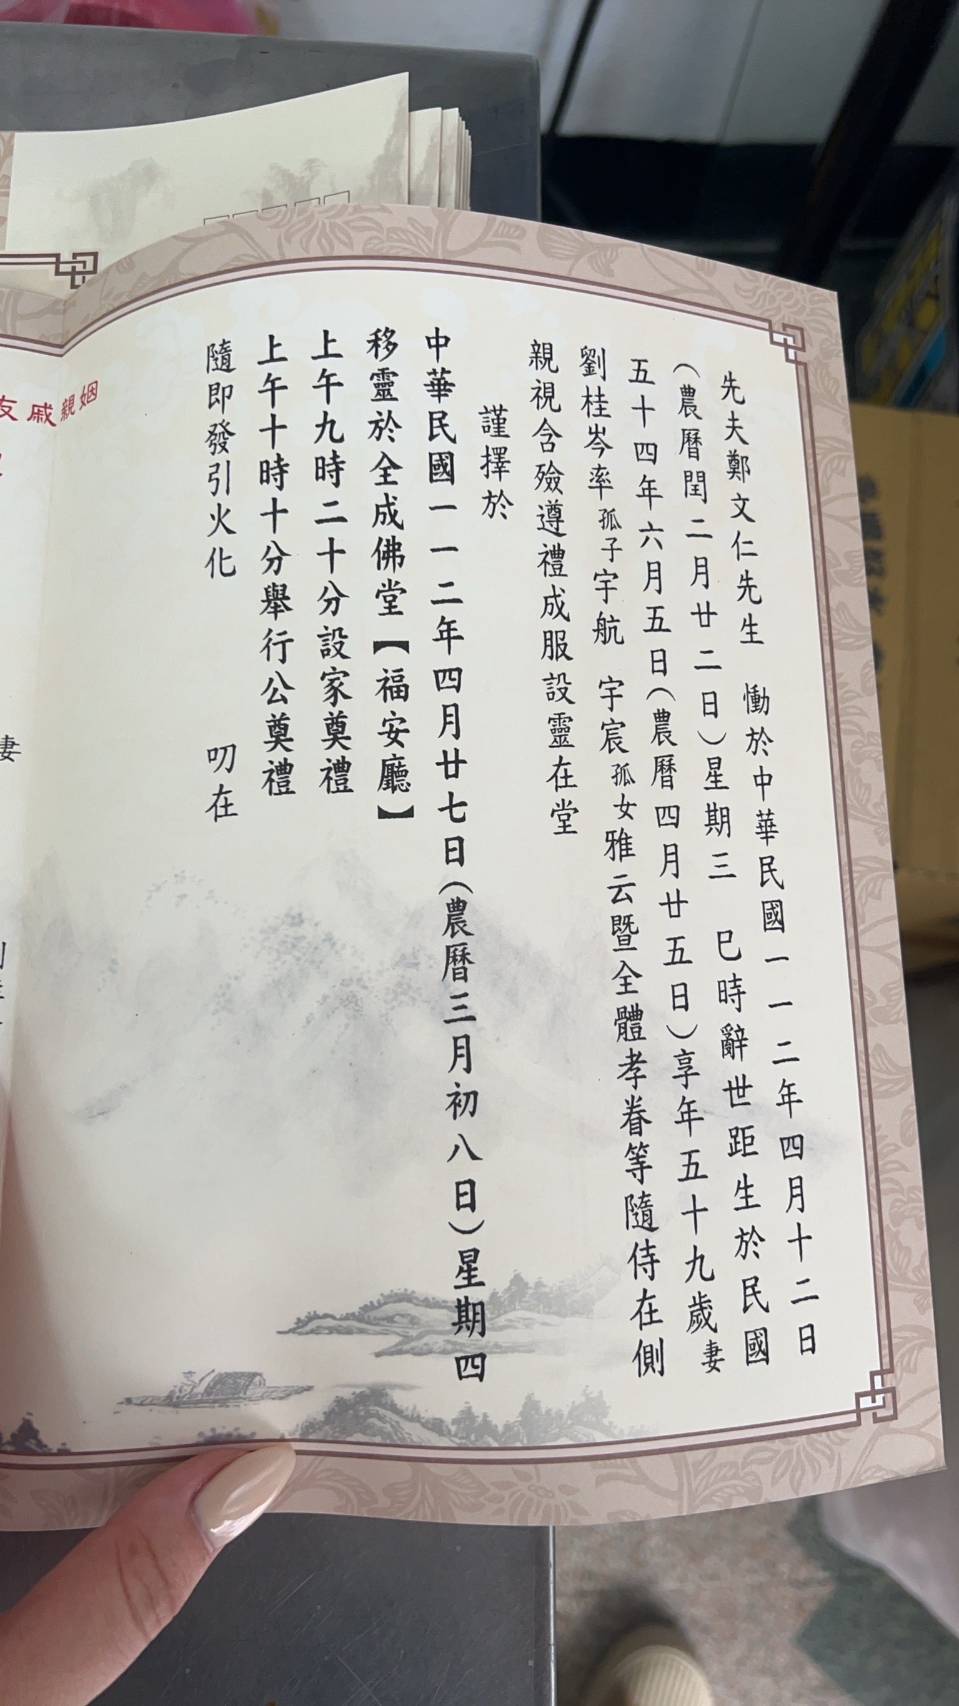 先夫鄭文仁先生　慟於中華民國一一二年四月十二日
（農曆閏二月廿二日）星期三　巳時辭世距生於民國
五十四年六月五日（農曆四月廿五日）享年五十九歲妻
劉桂岑率孤子宇航　宇宸孤女雅云暨全體孝眷等隨侍在側
親視含殮遵禮成服設靈在堂
謹擇於
中華民國一一二年四月廿七日（農曆三月初八日）星期四
移靈於全成佛堂【福安廳】
上午九時二十分設家奠禮
上午十時十分舉行公奠禮
隨即發引火化　叨在
姻親戚友
妻